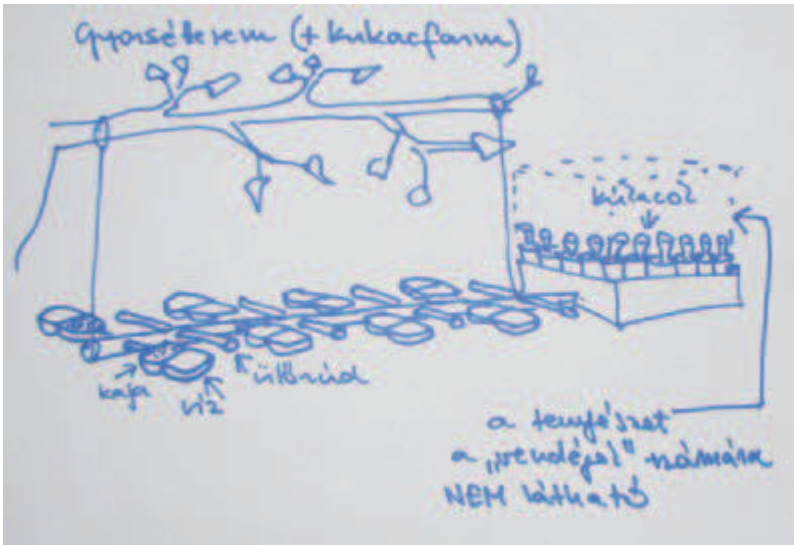 Gyorséterem (+ kukacfarm)
kulacol
kaja
víz
ülőrúd
a tenyészet
a „vendégek" számára
NEM látható